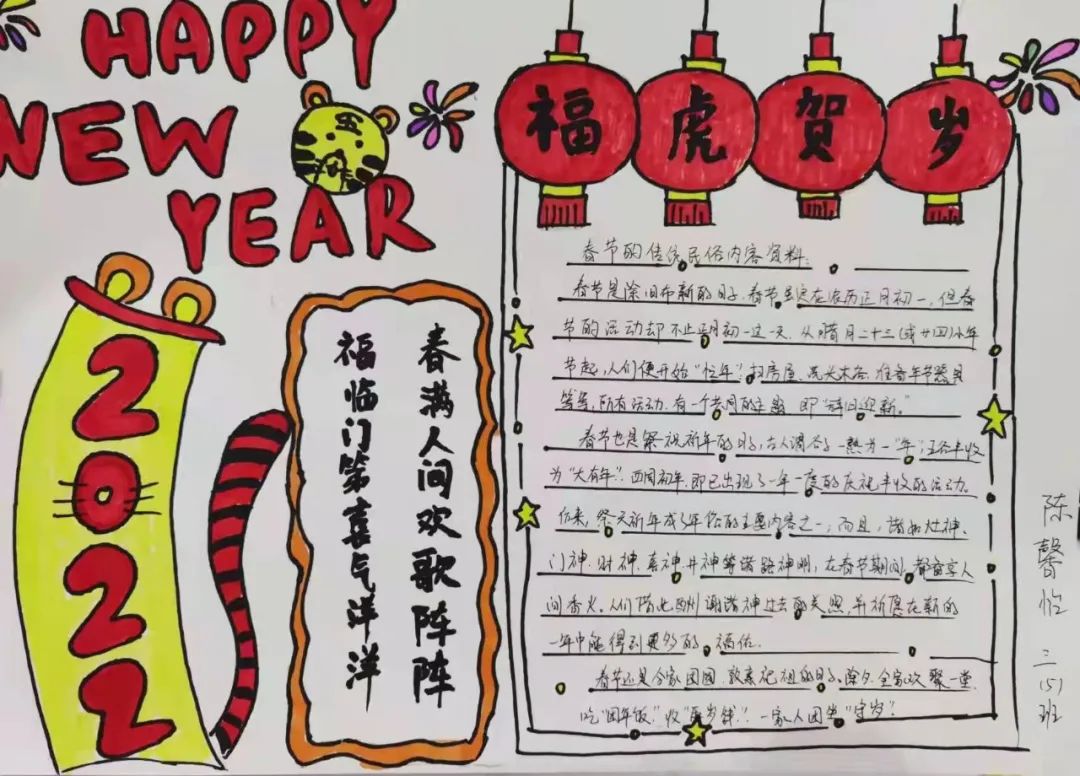 HAPPY
NEW
YEAR
王
2022
福虎贺岁
春满人间欢歌阵阵
福临门第喜气洋洋
春节的传统民俗内容资料:
春节是除旧布新的日子.春节虽定在农历正月初一,但春
节的活动却不止正月初一这一天.从腊月二十三(或廿四)小年
节起,人们便开始"忙年":扫房屋、洗头沐浴、准备年节器具
等等,所有活动.有一个共同的主题.即"辞旧迎新."
春节也是祭祝祈年的日子,古人谓谷子一熟为一"年";五谷丰收
为"大有年".西周初年.即已出现了一年一度的庆祝丰收的活动.
后来,祭天祈年成了年俗的主要内容之一;而且,诸如灶神、
门神、财神、喜神、井神等诸路神明,在春节期间,都备享人
间香火,人们借此酬谢诸神过去的关照,并祈愿在新的
一年中能得到更多的福佑.
春节还是合家团圆、敦亲祀祖的日子.除夕.全家欢聚一堂.
吃"团年饭".收"压岁钱".一家人团坐"守岁".
陈馨怡
三(5)班